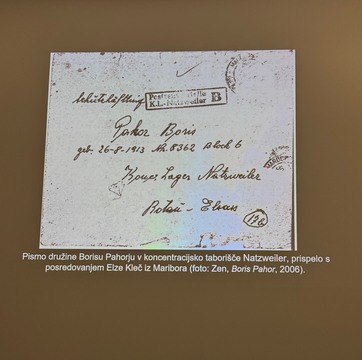 Schutzhäftling
Postzensurstelle
K.L.-Natzweiler B
Pahor Boris
geb. 26-8-1913 Nr. 8362 Block 6
Konz Lager Natzweiler
Rotau - Elsass
176
Pismo družine Borisu Pahorju v koncentracijsko taborišče Natzweiler, prispelo s
posredovanjem Elze Kleč iz Maribora (foto: Zen, Boris Pahor, 2006).